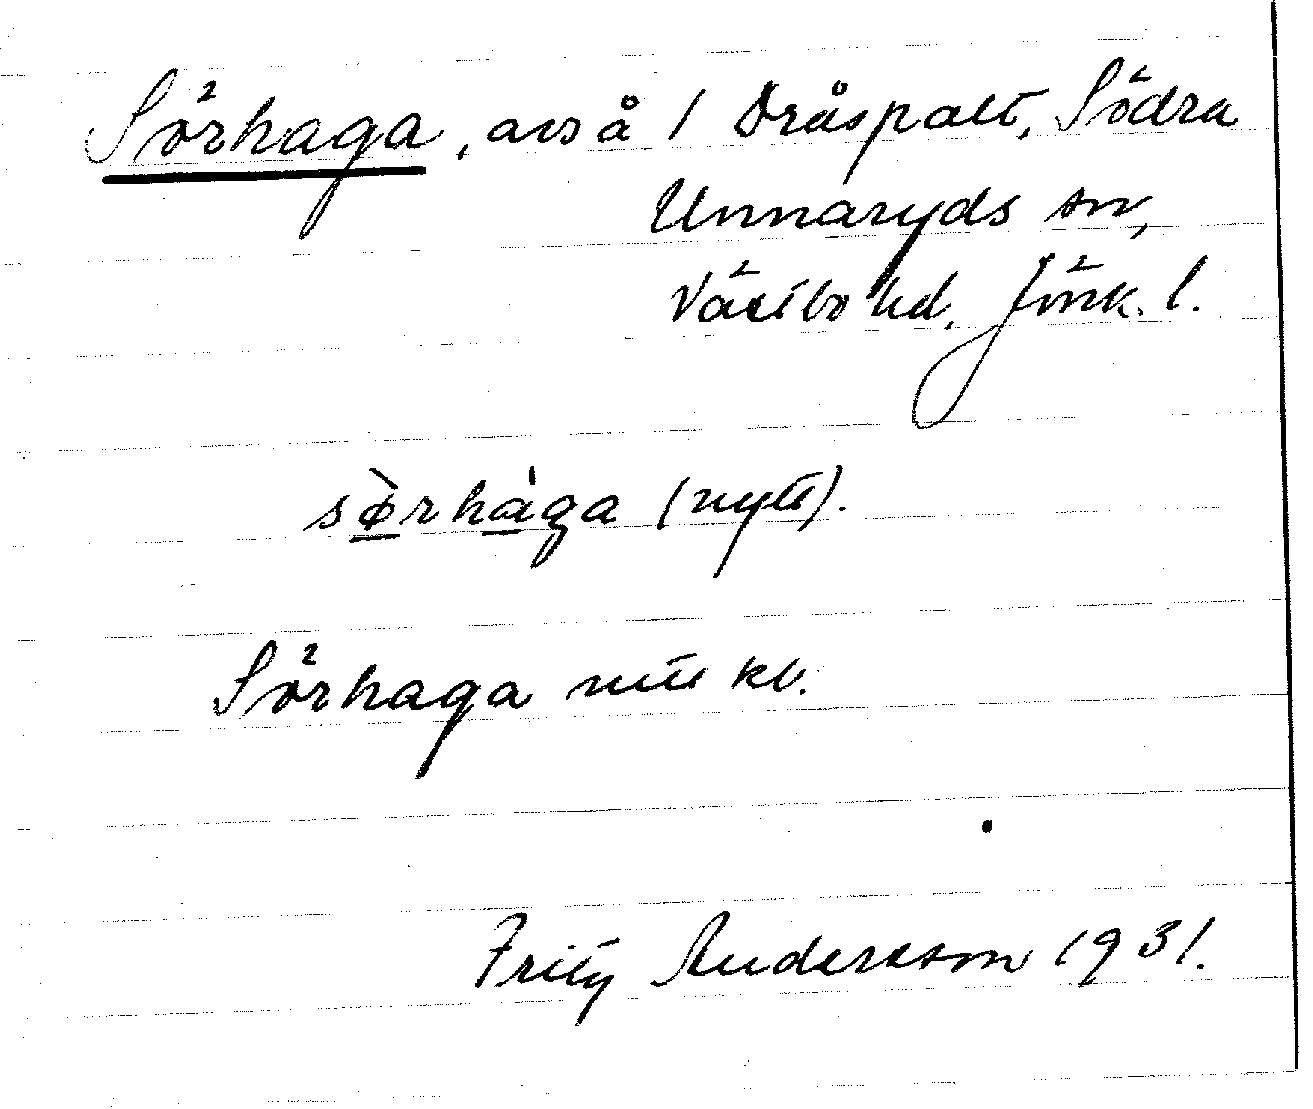 Sörhaga, avs å 1 Dråspalt, Södra
Unnaryds sn,
Västbo hd, Jönk. l.
sø̀rhàga (nytt).
Sörhaga
Frity Andersson 1931.